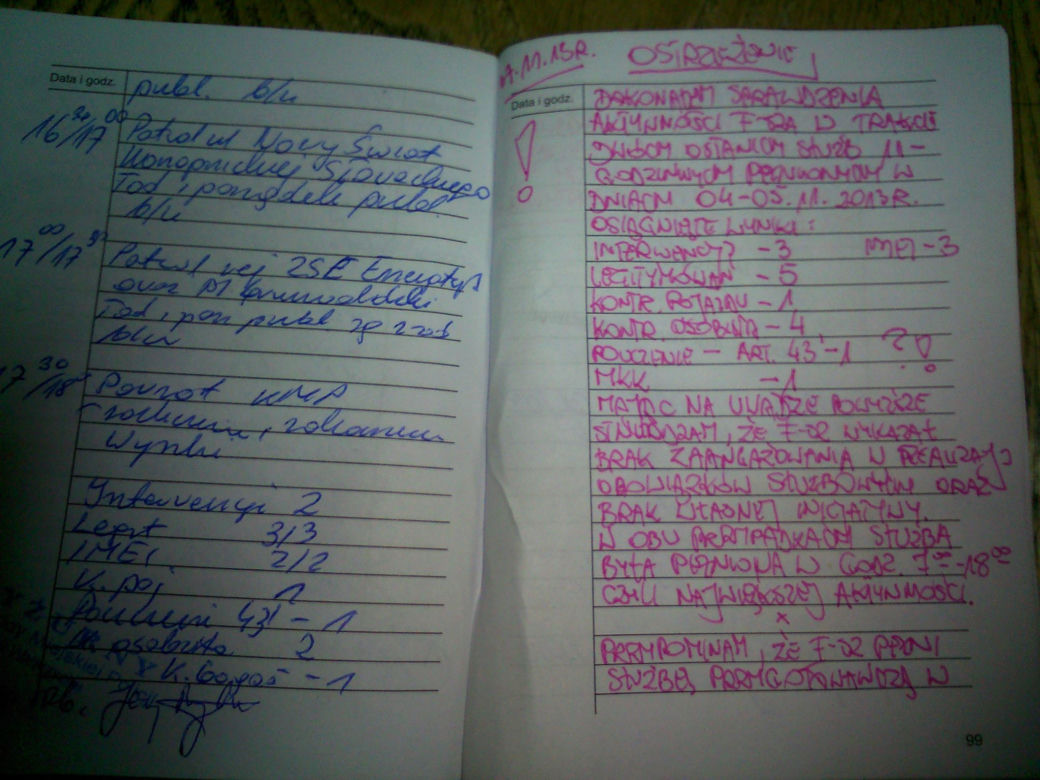 Data i godz.
publ. b/u
16 30/17 00
Patrol ul Nowy Świat
Konopnickiej Słowackiego
Ład i porządek publ.
b/u
17 00/17 30
Patrol rej ZSE Energetyk
oraz Pl Grunwaldzki
Ład i por publ
b/u
17 30/18
Powrót KMP
zakończenie
Wyniki
Interwencji 2
Legit 3/3
IMEI 2/2
K. poj 1
Pouczeni 43¹ - 1
osobista 2
K. bagaż - 1
11.13R. OSTRZEŻENIE
Data i godz.
DOKONAŁEM SPRAWDZENIA
!
AKTYWNOŚCI F-02A W TRAKCIE
DWÓCH OSTATNICH SŁUŻB 11-
GODZINNYCH PEŁNIONYCH W
DNIACH 04-05.11.2013R.
OSIĄGNIĘTE WYNIKI:
INTERWENCJI - 3 IMEI - 3
LEGITYMOWAŃ - 5
KONTR. POJAZDU - 1
KONTR. OSOBISTA - 4
POUCZENIE - ART. 43¹ - 1 ? !
MKK - 1
MAJĄC NA UWADZE POWYŻSZE
STWIERDZAM, ŻE F-02 WYKAZAŁ
BRAK ZAANGAŻOWANIA W REALIZACJI
OBOWIĄZKÓW SŁUŻBOWYCH ORAZ
BRAK WŁASNEJ INICJATYWY.
W OBU PRZYPADKACH SŁUŻBA
BYŁA PEŁNIONA W GODZ. 7 00 - 18 00
CZYLI NAJWIĘKSZEJ AKTYWNOŚCI.
x
PRZYPOMINAM, ŻE F-02 PEŁNI
SŁUŻBĘ PRZYGOTOWAWCZĄ W
99